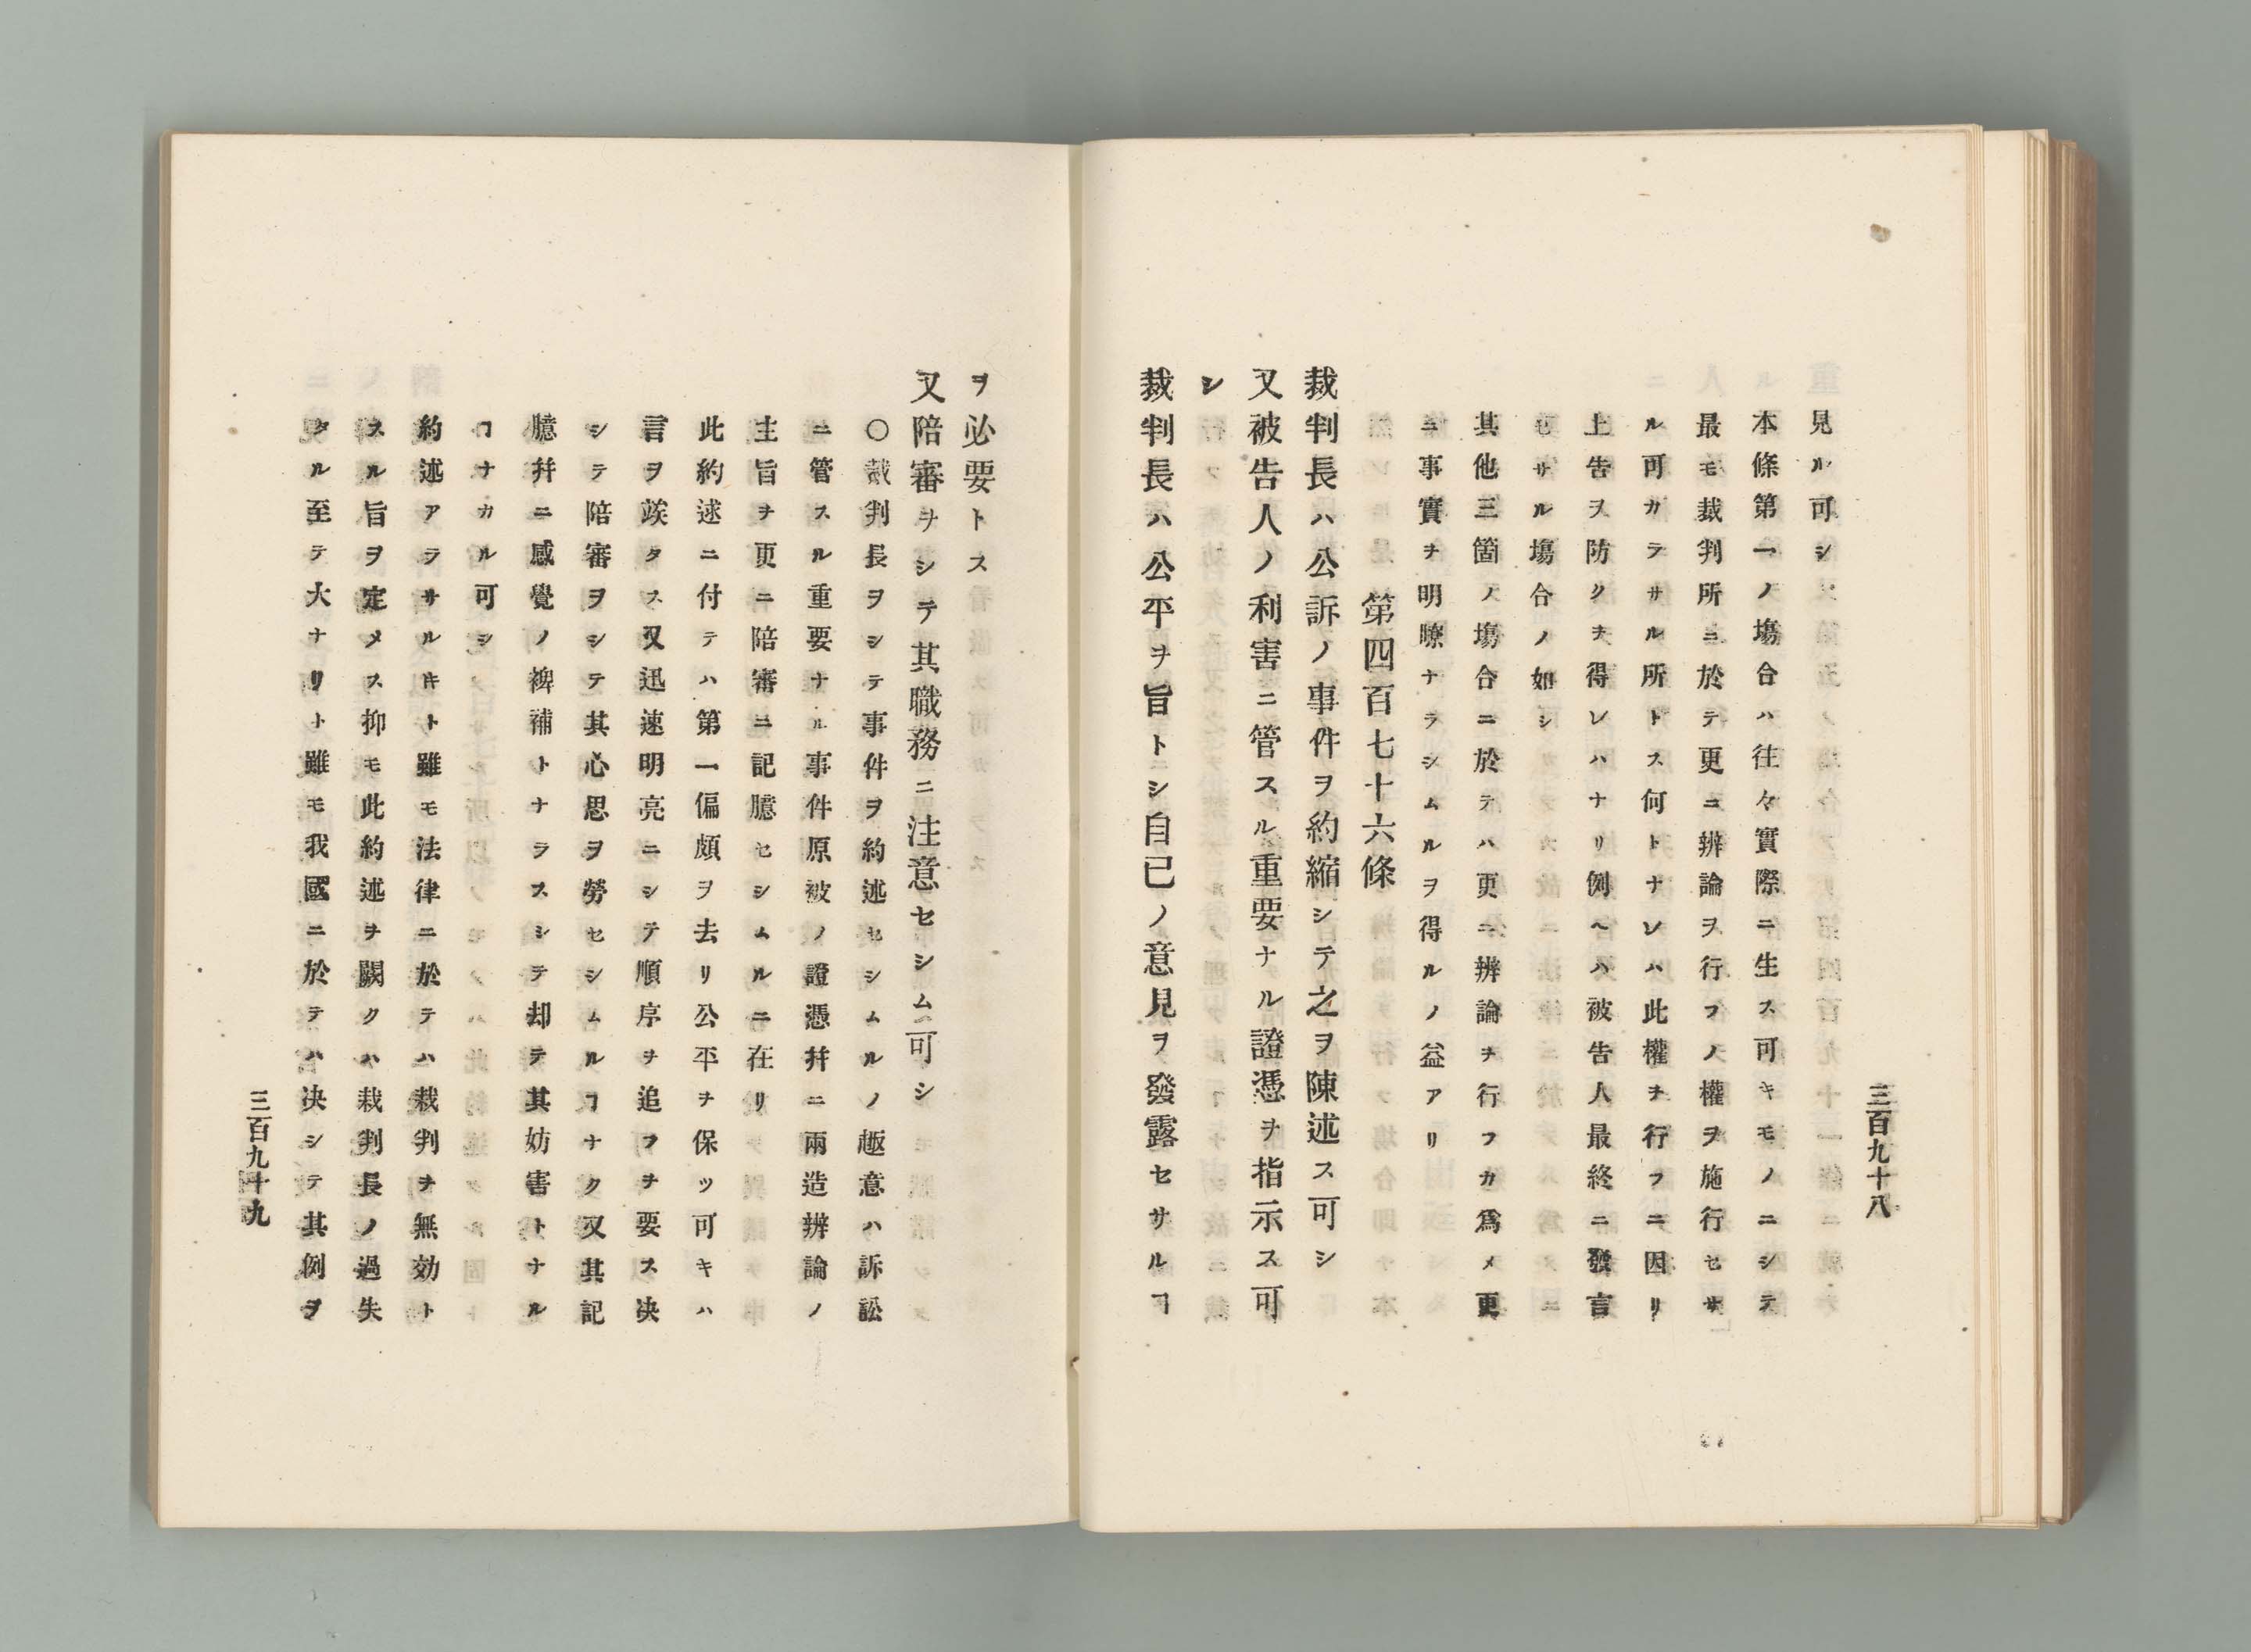 三百九十八
見ル可シ
本條第一ノ塲合ハ往々實際ニ生ス可キモノニシテ
最モ裁判所ニ於テ更ニ辨論ヲ行フノ權ヲ施行セサ
ル可カラサル所トス何トナレハ此權ヲ行フニ因リ
上告ヲ防クヲ得レハナリ例ヘハ被告人最終ニ發言
セサル塲合ノ如シ
其他三箇ノ塲合ニ於テハ更ニ辨論ヲ行フカ爲メ更
ニ事實ヲ明瞭ナラシムルヲ得ルノ益アリ
第四百七十六條
裁判長ハ公訴ノ事件ヲ約縮シテ之ヲ陳述ス可シ
又被告人ノ利害ニ管スル重要ナル證憑ヲ指示ス可
シ
裁判長ハ公平ヲ旨トシ自已ノ意見ヲ發露セサルヿ
ヲ必要トス
又陪審ヲシテ其職務ニ注意セシム可シ
〇裁判長ヲシテ事件ヲ約述セシムルノ趣意ハ訴訟
ニ管スル重要ナル事件原被ノ證憑幷ニ兩造辨論ノ
主旨ヲ更ニ陪審ニ記臆セシムルニ在リ
此約述ニ付テハ第一偏頗ヲ去リ公平ヲ保ツ可キハ
言ヲ竢タス又迅速明亮ニシテ順序ヲ追フヲ要ス决
シテ陪審ヲシテ其心思ヲ勞セシムルヿナク又其記
臆幷ニ感覺ノ裨補トナラスシテ却テ其妨害トナル
ヿナカル可シ
約述アラサルキト雖モ法律ニ於テハ裁判ヲ無効ト
スル旨ヲ定メス抑モ此約述ヲ闕クハ裁判長ノ過失
タル至テ大ナリト雖モ我國ニ於テハ决シテ其例ヲ
三百九十九